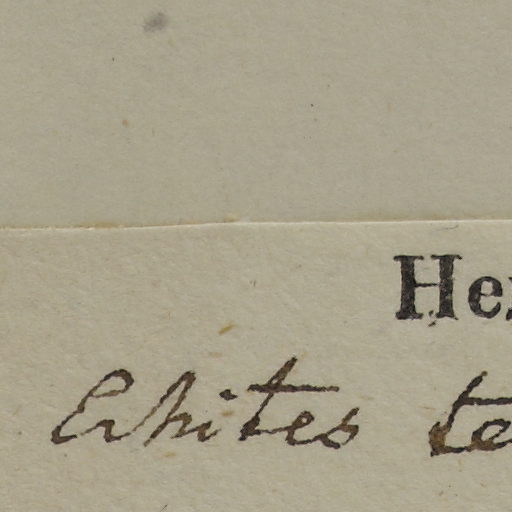 He
Echites te